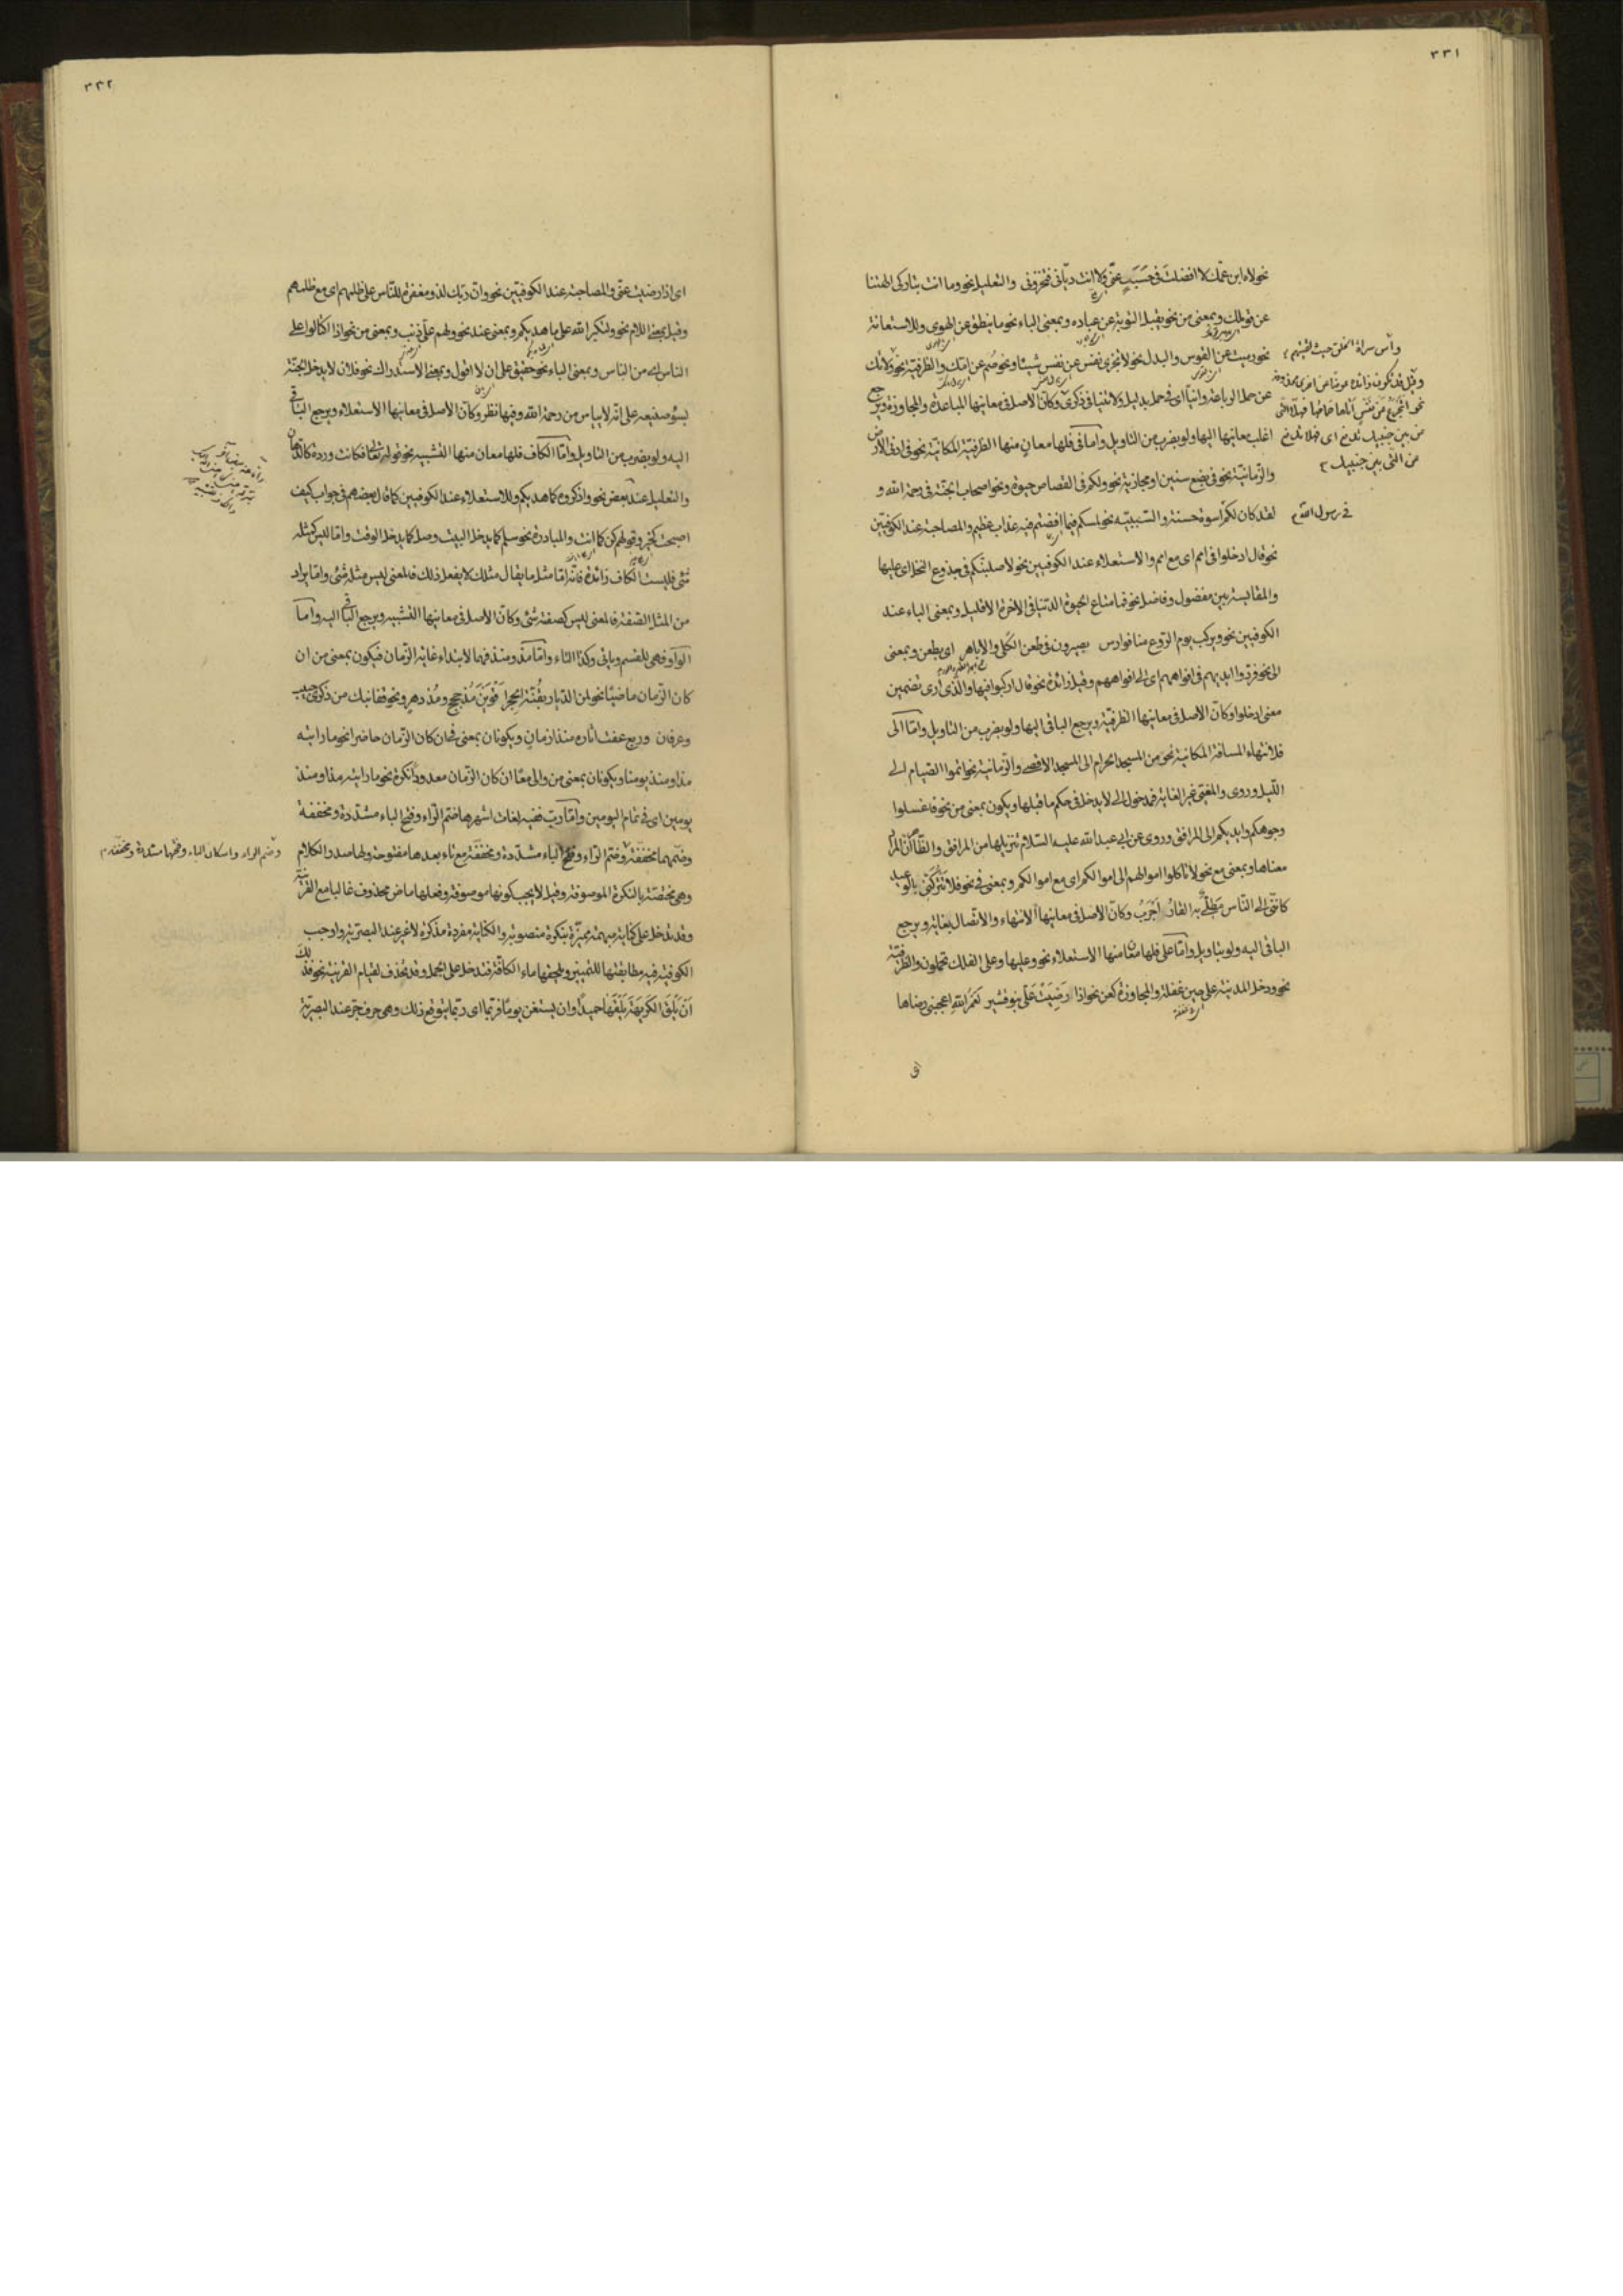 ٣٣١
نحو لاه ابن عمّك لا افضلت فى حَسَبٍ عنّى ولا انت ديّانى فتخزونى والتعليل نحو وما انت بتاركى الهتنا
عن قولك وبمعنى من نحو يقبل التوبة عن عباده وبمعنى الباء نحو ما ينطق عن الهوى وللاستعانة
نحو رميت عن القوس والبدل نحو لا تجزى نفس عن نفس شيئا ونحو صُم عن امّك والظرفيّة نحو ولا تك
عن حمل الرباعة وانيًا اى فى حمل بدليل ولا تنيا فى ذكرى وكأنّ الاصل فى معانيها المباعدة والمجاوزة ويرجع
اغلب معانيها اليها ولو بضرب من التاويل وامّا فى فلها معان منها الظرفيّة المكانيّة نحو فى ادنى الارض
والزّمانيّة نحو فى بضع سنين او مجازيّة نحو ولكم فى القصاص حيوة ونحو اصحاب الجنّة فى رحمة الله و
لقد كان لكم اسوة حسنة والسّببيّة نحو لمسكم فيما افضتم فيه عذاب عظيم والمصاحبة عند الكوفيّين
نحو قال ادخلوا فى امم اى مع امم والاستعلاء عند الكوفيين نحو لاصلبنّكم فى جذوع النخل اى عليها
والمقايسة بين مفضول وفاضل نحو فما متاع الحيوة الدّنيا فى الاخرة الا قليل وبمعنى الباء عند
الكوفيين نحو ويركب يوم الرّوع منا فوارس بصيرون فى طعن الكلى والاباهر اى بطعن وبمعنى
الى نحو فردّوا ايديهم فى افواههم اى الى افواههم وقيل زائدة نحو قال اركبوا فيها والّذى ارى تضمين
معنى ادخلوا وكأنّ الاصل فى معانيها الظرفيّة ويرجع الباقى اليها ولو بضرب من التاويل وامّا الى
فلانتهاء المسافة المكانية نحو من المسجد الحرام الى المسجد الاقصى والزّمانية نحو اتموا الصّيام الى
اللّيل وروى والمغيّى غير الغاية فمدخول الى لا يدخل فى حكم ما قبلها ويكون بمعنى من نحو فاغسلوا
وجوهكم وايديكم الى المرافق وروى عن ابى عبد الله عليه السّلام تنزيلها من المرافق والظّاهر انّ المراد
معناها وبمعنى مع نحو لا تاكلوا اموالهم الى اموالكم اى مع اموالكم وبمعنى فى نحو فلا تتركنّى بالوعيد
كانّنى الى النّاس مَطلىٌّ به القار اجرب وكأنّ الاصل فى معانيها الانتهاء والاتّصال بغاية ويرجع
الباقى اليه ولو بتاويل وامّا على فلها معان منها الاستعلاء نحو وعليها وعلى الفلك تحملون والظرفيّة
نحو ودخل المدينة على حين غفلة والمجاوزة كعن نحو اذا رَضِيَتْ عَلَىّ بنو قشير لَعَمرُ اللهِ اعجبنى رضاها
اى
فى رسول الله
٣٣٢
اى اذا رضيت عنّى والمصاحبة عند الكوفيّين نحو وانّ ربّك لذو مغفرة للنّاس على ظلمهم اى مع ظلمهم
وقيل بمعنى اللام نحو ولتكبر الله على ما هديكم وبمعنى عند نحو ولهم علىّ ذنب وبمعنى من نحو اذا اكتالوا على
الناس اى من الناس وبمعنى الباء نحو حقيق على ان لا اقول وبمعنى الاستدراك نحو فلان لا يدخل الجنّة
بسوء صنيعه على انّه لا يياس من رحمة الله وفيها نظر وكأنّ الاصل فى معانيها الاستعلاء ويرجع الباقى
اليه ولو بضرب من التاويل وامّا الكاف فلها معان منها التشبيه نحو قوله تعالى فكانت وردة كالدّهان
والتعليل عند بعض نحو واذكروه كما هديكم وللاستعلاء عند الكوفيين كما قال بعضهم فى جواب كيف
اصبحت كخير وقولهم كن كما انت والمبادرة نحو سلم كما يدخل البيت وصل كما يدخل الوقت وامّا ليس كمثله
شىء فليست الكاف زائدة فانّه امّا مثل ما يقال مثلك لا يفعل ذلك فالمعنى ليس مثله شىء وامّا يراد
من المثل الصّفة فالمعنى ليس كصفته شىء وكأنّ الاصل فى معانيها التشبيه ويرجع الباقى اليه وامّا
الواو فهى للقسم وياتى وكذا التاء وامّا مذ ومنذ فهما لابتداء غاية الزّمان فيكون بمعنى من ان
كان الزّمان ماضيًا نحو لمن الدّيار بقُنّة الحِجر اقْوَيْنَ مُذ حجج ومُذ دهر ونحو قفا نبك من ذكرى حبيب
وعرفان وربع عفت اثاره منذ ازمان ويكونان بمعنى فى ان كان الزّمان حاضرا نحو ما رايته
مذ او منذ يومنا ويكونان بمعنى من والى معًا ان كان الزّمان معدودا نكرة نحو ما رايته مذ او منذ
يومين اى فى تمام اليومين وامّا ربّ ففيه لغات اشهرها ضم الرّاء وفتح الباء مشدّدة ومخففة
وضمّهما مخفّفة وضمّ الرّاء وفتح الباء مشدّدة ومخفّفة مع تاء بعدها مفتوحة ولها صدر الكلام
وهى مختصّة بالنكرة الموصوفة وقيل لا يجب كونها موصوفة وفعلها ماض محذوف غالبا مع القرينة
وقد تدخل على كناية مبهمة مميّزة بنكرة منصوبة والكناية مفردة مذكرة لا غير عند البصريّة واوجب
الكوفيّة فيه مطابقتها للتمييز ويلحقها ماء الكافّة فتدخل على الجمل وقد تحذف لقيام القرينة نحو فذلك
اَن يَلقَ الكَريهَةَ يَلْقَها حميدًا وان يستغن يومًا فربّما اى ربّما يتوقع ذلك وهى حرف جرّ عند البصريّة
وضم الراء واسكان الباء وفتحها مشددة ومخففة